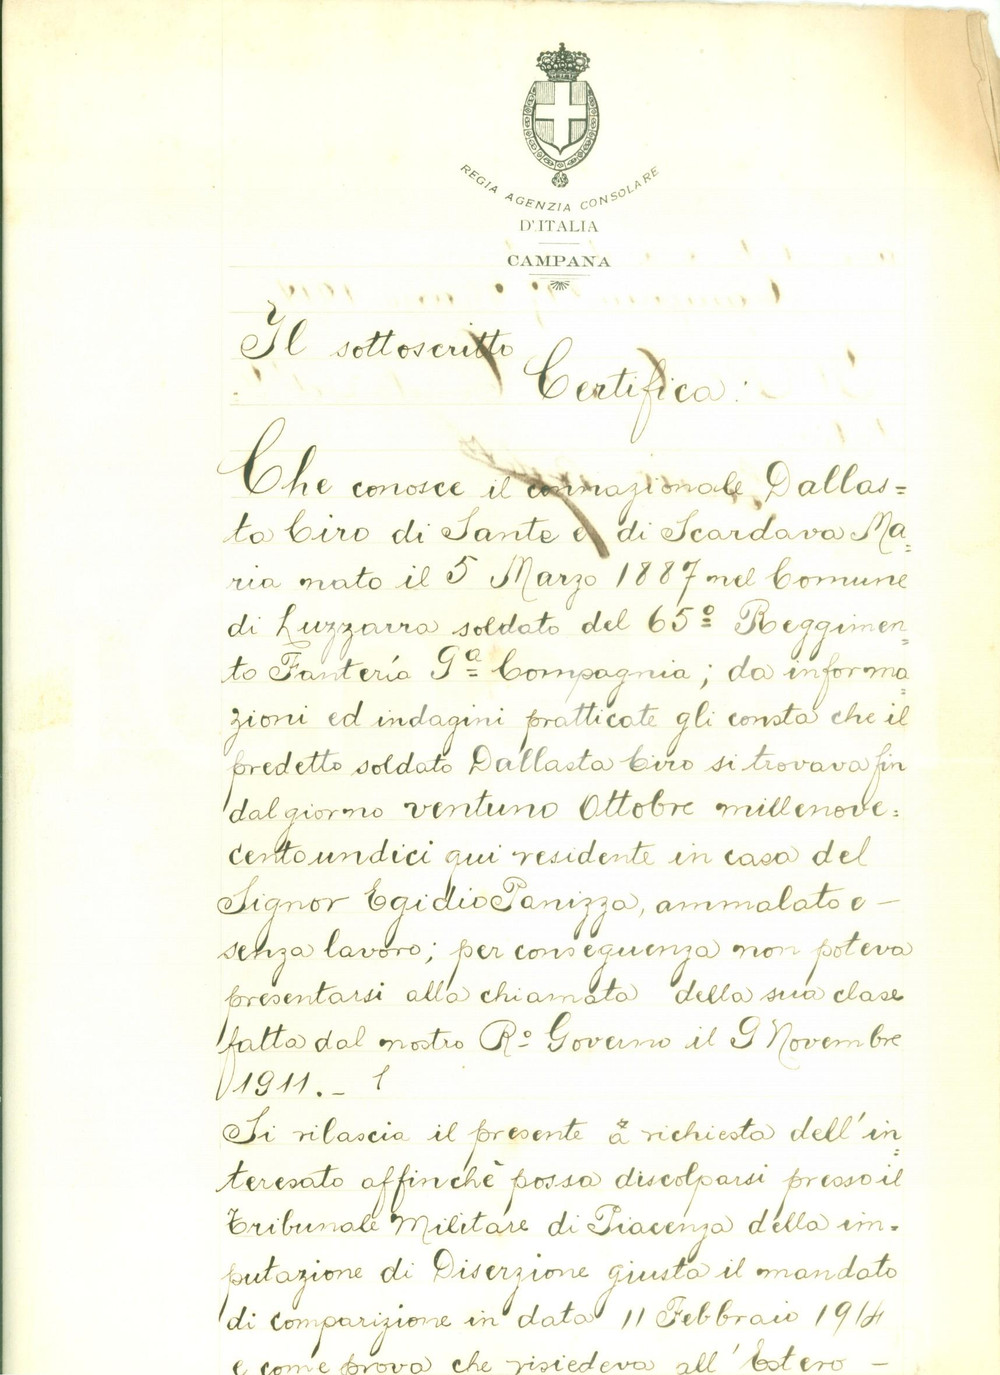 REGIA AGENZIA CONSOLARE
D'ITALIA
CAMPANA
Il sottoscritto
Certifica:
Che conosce il connazionale Dallas=
ta Ciro di Sante e di Scardava Ma=
ria nato il 5 Marzo 1887 nel Comune
di Luzzarra soldato del 65º Reggimen=
to Fantería 9ª Compagnia; da informa=
zioni ed indagini pratticate gli consta che il
predetto soldato Dallasta Ciro si trovava fin
dal giorno ventuno Ottobre millenove=
cento undici qui residente in casa del
Signor Egidio Panizza, ammalato e -
senza lavoro; per conseguenza non poteva
presentarsi alla chiamata della sua clase
fatta dal nostro Rº Governo il 9 Novembre
1911. -
Si rilascia il presente a richiesta dell'in=
teresato affinchè possa discolparsi presso il
Tribunale Militare di Piacenza della im=
putazione di Diserzione giusta il mandato
di comparizione in data 11 Febbraio 1914
e come prova che risiedeva all'Estero -